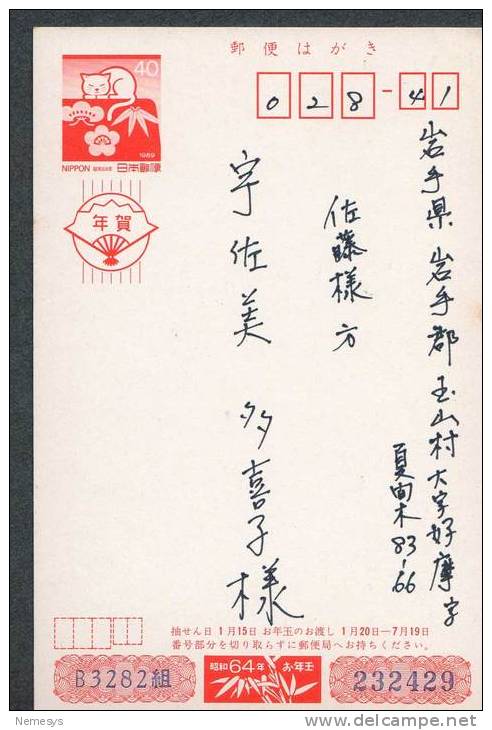 郵便はがき
40
1989
NIPPON 日本郵便
年賀
028-41
岩手県岩手郡玉山村大字好摩字
夏間木83-66
佐藤様方
宇佐美 多喜子様
抽せん日 1月15日 お年玉のお渡し 1月20日―7月19日
番号部分を切り取らずに郵便局へお持ちください。
B3282組
昭和64年 お年玉
232429
Nemesys
delcampe.net